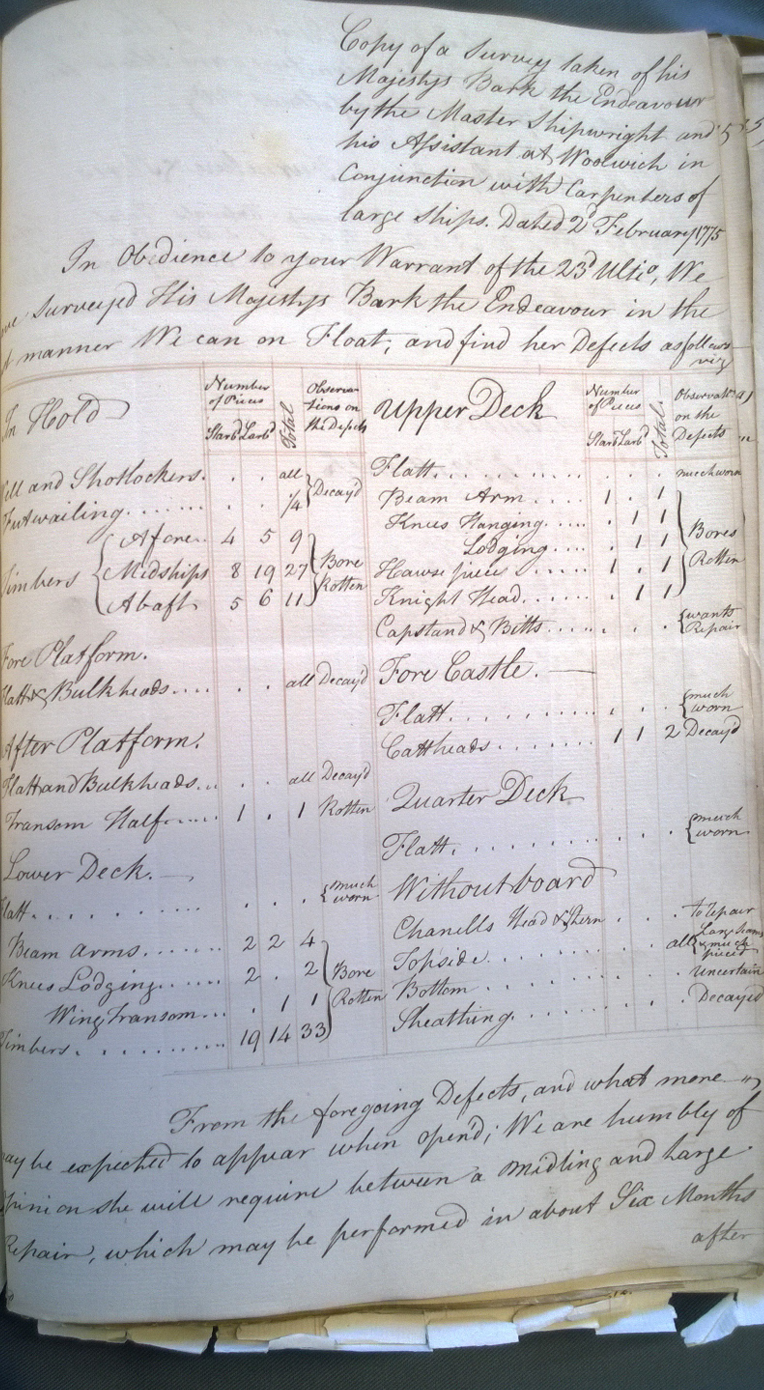 Copy of a Survey taken of his
Majestys Bark the Endeavour
by the Master Shipwright and
his Assistant at Woolwich in
Conjunction with Carpenters of
large Ships. Dated 2d February 1775
In Obedience to your Warrant of the 23d Ulto, We
Surveyed His Majestys Bark the Endeavour in the
manner We can on Float, and find her Defects as follows
viz
In Hold
Number of Pieces
Starbd Larbd
Total
Observations on the Defects
and Shotlockers. . . all
Futwailing....... . . 1/4
} Decay'd
Timbers { Afore.. 4 5 9
Midships 8 19 27
Abaft 5 6 11
} Bore Rotten
Fore Platform.
Flatt & Bulkheads.... . . all Decay'd
After Platform.
Flatt and Bulkheads... all Decay'd
Transom Half..... 1 . 1 Rotten
Lower Deck.
Flatt. . . . . . . . . . . . { much worn
Beam Arms....... 2 2 4
Knees Lodging...... 2 . 2
Wing Transom... . 1 1
Timbers. . . . . . . . 19 14 33
} Bore Rotten
Upper Deck
Number of Pieces
Starbd Larbd
Total.
Observatns on the Defects
Flatt. . . . . . . . . . . much worn
Beam Arm..... 1 . 1
Knees Hanging..... . 1 1
Lodging.... . 1 1
Hawse piece...... 1 . 1
Knight Head..... . 1 1
} Bores Rotten
Capstand & Bitts..... . . . { wants Repair
Fore Castle.
Flatt. . . . . . . . . . . { much worn
Cattheads........ 1 1 2 Decay'd
Quarter Deck
Flatt. . . . . . . . . . . . { much worn
Without board
Chanells Head & Stern . . . to repair
Topside. . . . . . . all { Large &much pieced
Bottom. . . . . . . . . . uncertain
Sheathing. . . . . . . . . Decayed
From the foregoing Defects, and what more
may be expected to appear when open'd; We are humbly of
Opinion she will require between a Midling and Large
Repair, which may be performed in about Six Months
after